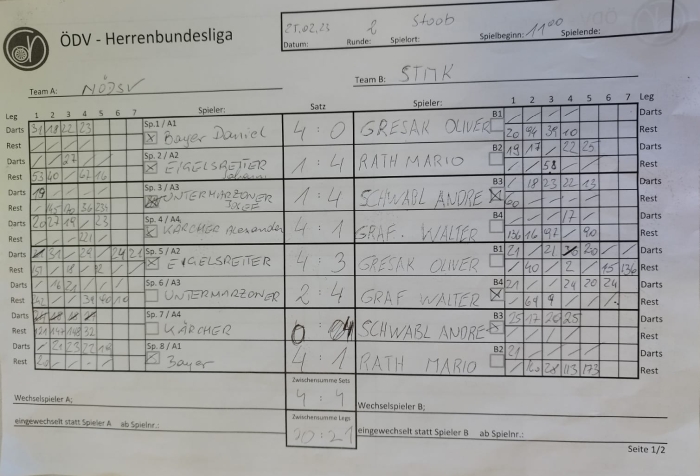 ÖDV - Herrenbundesliga
25.02.23 2 Stoob 11 00
Datum: Runde: Spielort: Spielbeginn: Spielende:
Team A: NÖDSV Team B: STMK
Leg 1 2 3 4 5 6 7 Spieler: Satz Spieler: 1 2 3 4 5 6 7 Leg
Darts 31 18 22 23 Sp.1 / A1 B1 / / / / Darts
Rest / / / / Bayer Daniel 4 : 0 GRESAK OLIVER 20 94 39 10 Rest
Darts / / 27 / / Sp.2 / A2 B2 19 17 / 22 25 Darts
Rest 53 40 / 67 16 EIGELSREITER 1 : 4 RATH MARIO / / 58 / / Rest
Darts 19 / / / / Sp. 3 / A3 B3 / 18 23 22 13 Darts
Rest / UNTERMARZONER 1 : 4 SCHWABL ANDRE / / / / Rest
Darts / Sp.4 / A4 B4 / / / 17 / Darts
Rest / / / 221 / KÄRCHER Alexander 4 : 1 GRAF. WALTER 136 16 92 / 90 Rest
Darts Sp. 5 / A2 B1 21 / 21 20 / / Darts
Rest EIGELSREITER 4 : 3 GRESAK OLIVER / 40 / 2 / 15 136 Rest
Darts / 16 21 / / / Sp. 6 / A3 B4 21 / / 24 20 24 Darts
Rest / / 39 40 10 UNTERMARZONER 2 : 4 GRAF WALTER / 64 9 / / / Rest
Darts Sp. 7 / A4 B3 25 17 20 25 Darts
Rest 121 147 148 32 KÄRCHER 0 : 4 SCHWABL ANDRE / / / / Rest
Darts / 21 23 22 Sp. 8 / A1 B2 21 / / / / Darts
Rest 20 / / / / Bayer 4 : 1 RATH MARIO / 28 113 173 Rest
Zwischensumme Sets
4 : 4
Wechselspieler A; Wechselspieler B;
Zwischensumme Legs
20 : 21
eingewechselt statt Spieler A ab Spielnr.: eingewechselt statt Spieler B ab Spielnr.:
Seite 1/2